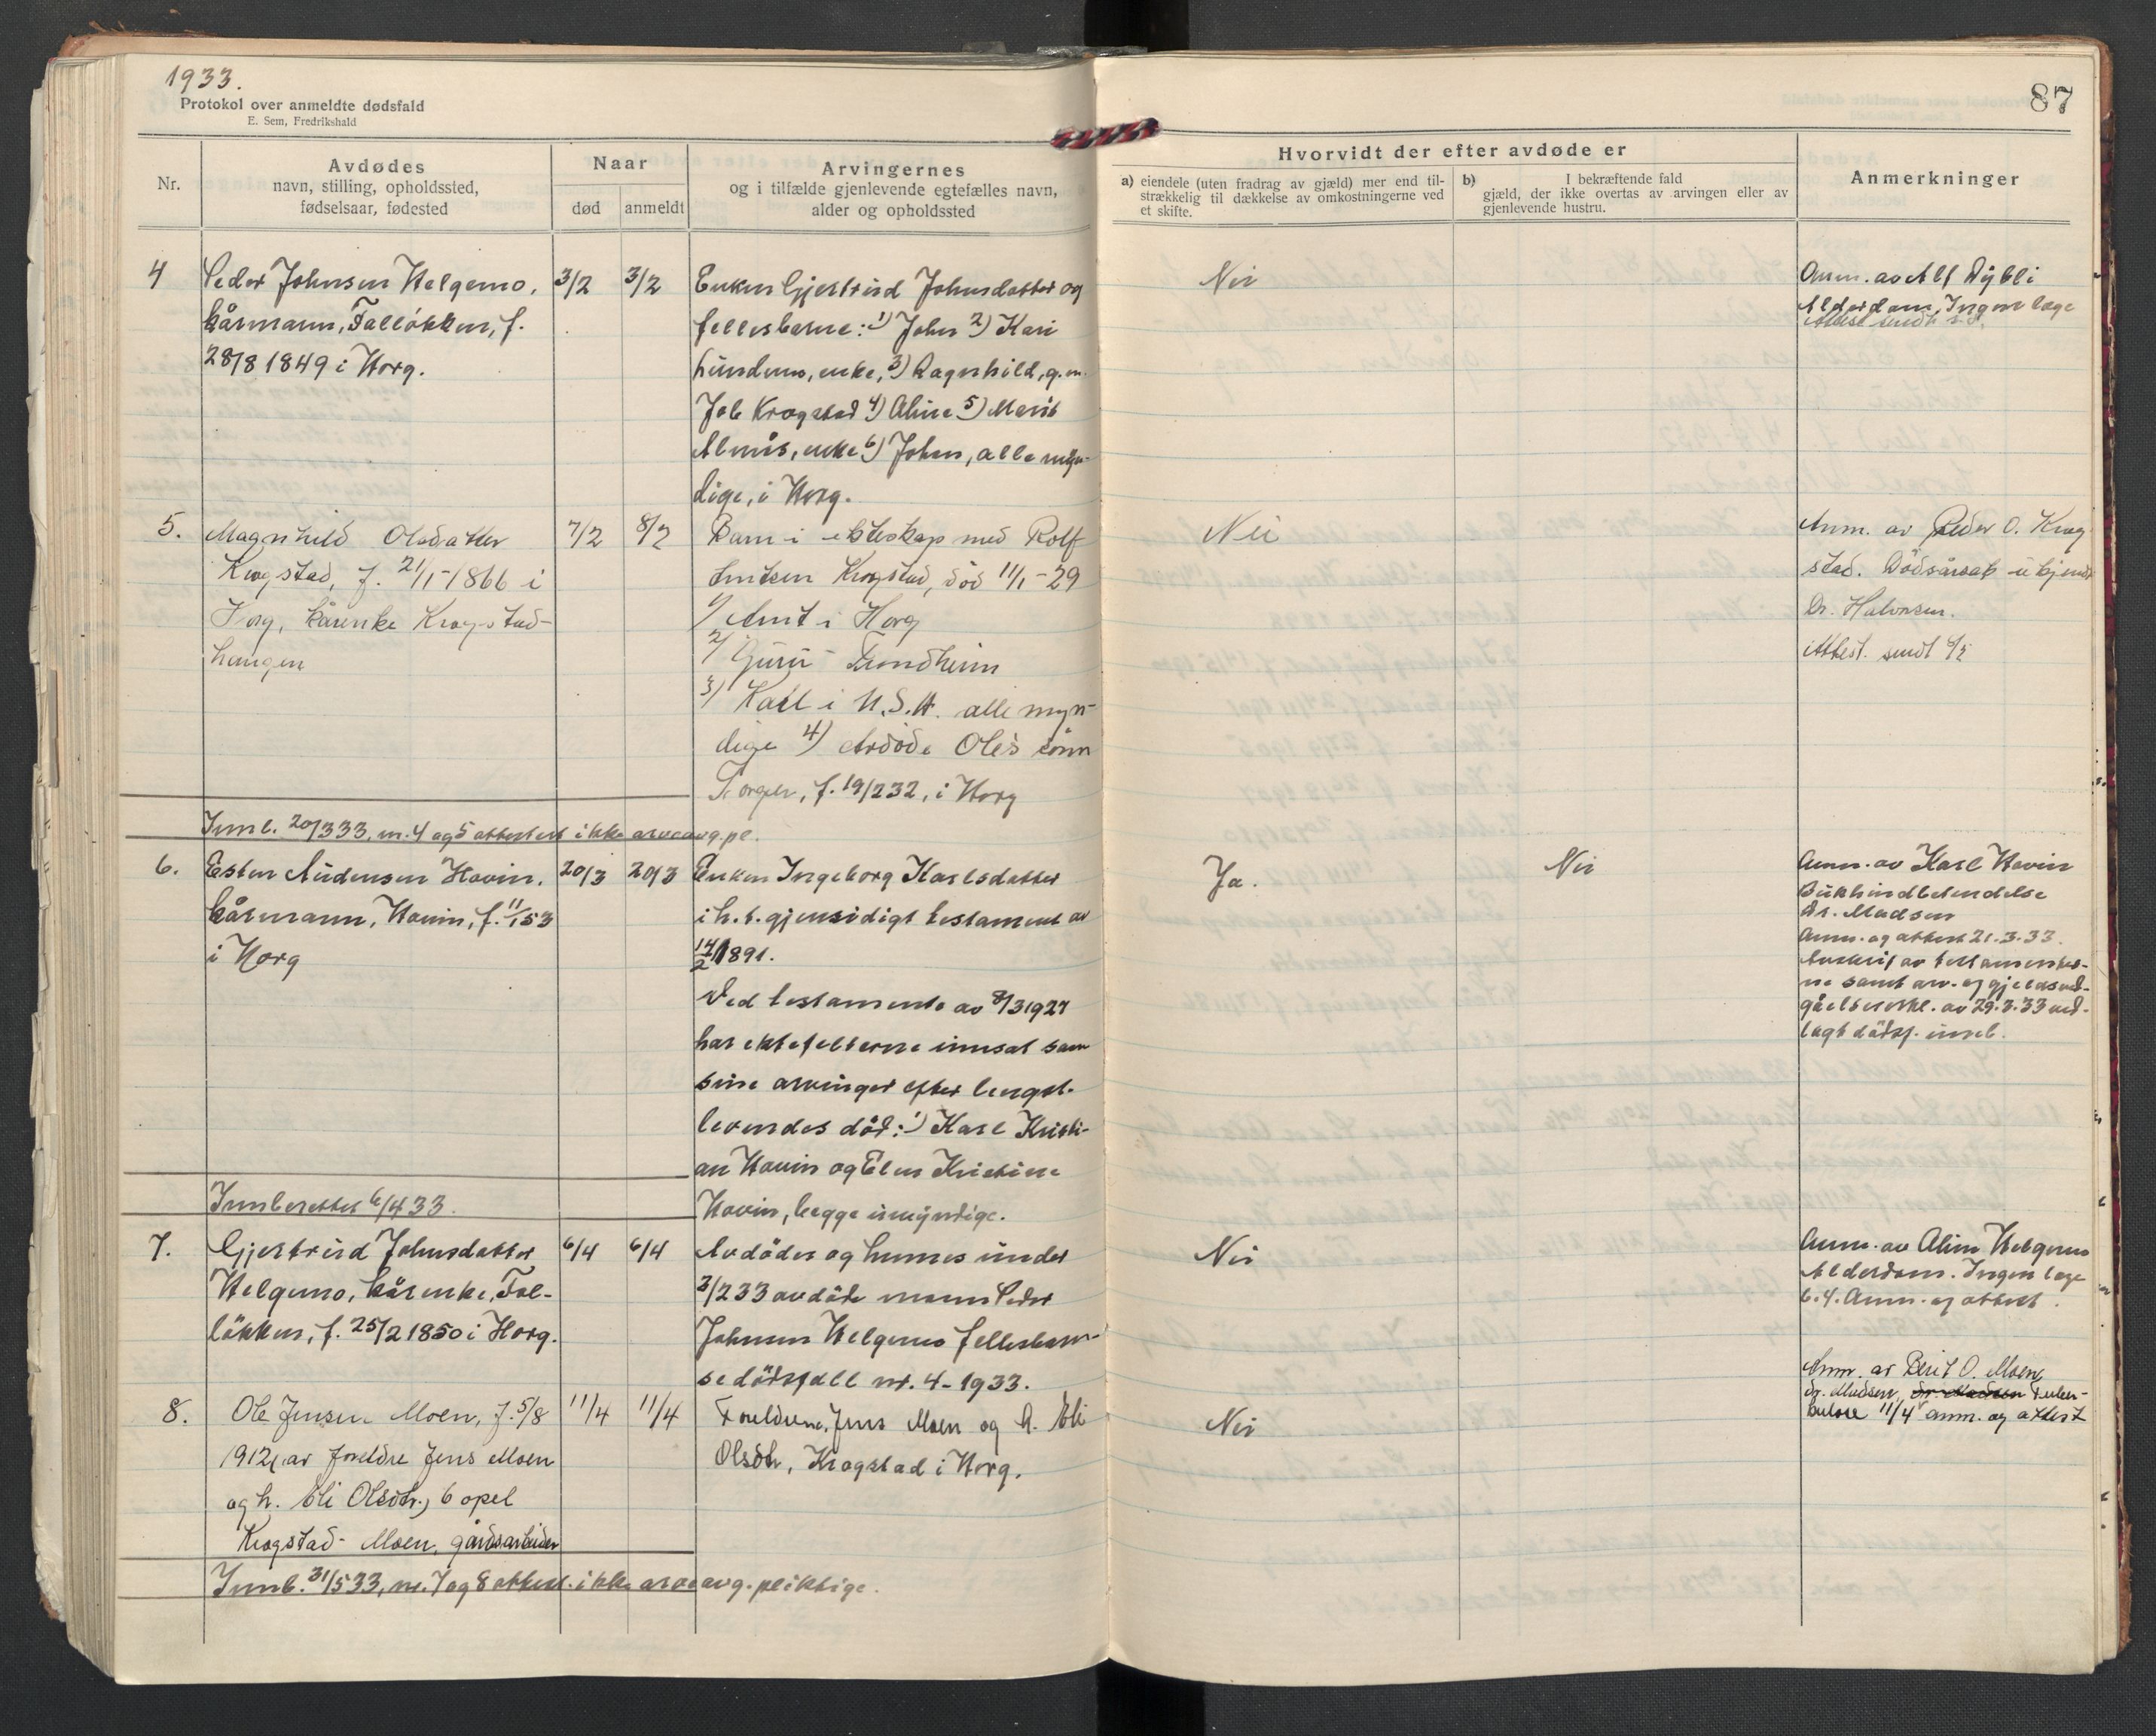 1933.
Protokol over anmeldte dødsfald
E. Sem, Fredrikshald
87
Nr.
Avdødes
navn, stilling, opholdssted,
fødselsaar, fødested
Naar
død
anmeldt
Arvingernes
og i tilfælde gjenlevende egtefælles navn,
alder og opholdssted
Hvorvidt der efter avdøde er
a) eiendele (uten fradrag av gjæld) mer end til-
strækkelig til dækkelse av omkostningerne ved
et skifte.
b) I bekræftende fald
gjæld, der ikke overtas av arvingen eller av
gjenlevende hustru.
Anmerkninger
4
Peder Johnsen Helgemo,
kårmann, Talløkken, f.
28/8 1849 i Horg.
3/2
3/2
Enken Gjertrud Johnsdatter og
fellesbarne: 1) John 2) Kari
enke, 3) Ragnhild, g.m.
Krogstad 4) Aline 5) Marit
Almås, enke 6) Johan, alle myn-
dige, i Horg.
Nei
Anm. av Alf Dybli
Alderdom, Ingen læge
Attest sendt s.d.
5.
Magnhild Olsdatter
Krogstad, f. 21/1-1866 i
Horg, kårenke Krogstad-
haugen
7/2
8/2
Barn i ekteskap med Rolf
Krogstad, død 11/1-29
1) Arnt i Horg
2) Guru - Trondheim
3) Karl i U.S.A. alle myn-
dige 4) Avdøde Ole's sønn
Torger, f. 19/2 32, i Horg
Nei
Anm. av Peder O. Krog
stad. Dødsårsak ukjendt
Dr. Halvorsen.
Attest. sendt
Innb. 20/3 33, nr. 4 og 5 attestert ikke arveavg.pl.
6.
Esten Audensen Hovin,
kårmann, Hovin, f. 11/1 53
i Horg
20/3
20/3
Enken Ingeborg Karlsdatter
i h.t. gjensidigt testament av
14/2 1891.
Ved testamente av 8/3 1927
har ektefellerne innsat som
sine arvinger efter lengst-
levendes død: 1) Karl Kristi-
an Hovin og Elen Kristine
Hovin, begge umyndige.
Ja.
Nei
Anm. av Karl Hovin
Bukhindbetendelse
Dr. Madsen
Anm. og attest 21.3.33.
Avskrift av testamenter-
ne samt arv- og gjeldsved-
gåelseserkl. av 29.3.33 ved-
lagt dødsf. innb.
Innberettet 6/4 33.
7.
Gjertrud Johnsdatter
Helgemo, kårenke, Tal-
løkken, f. 25/2 1850 i Horg.
6/4
6/4
Avdødes og hennes under
3/2 33 avdøde mann Peder
Johnsen Helgemo fellesbarn
se dødsfall nr. 4-1933.
Nei
Anm. av Aline Helgemo
Alderdom. Ingen læge
6.4. Anm. og attest.
8.
Ole Jensen Moen, f. 5/8
1912, av foreldre Jens Moen
og h. Eli Olsdtr., bopel
Krogstad-Moen, gårdsarbeider
11/4
11/4
Foreldrene, Jens Moen og h. Eli
Olsdtr., Krogstad i Horg.
Nei
Anm. av Berit O. Moen
dr. Madsen, dr. Madsen Tuber-
kulose 11/4 anm. og attest
Innb. 31/5 33, nr. 7 og 8 attest. ikke arveavg.pliktige.